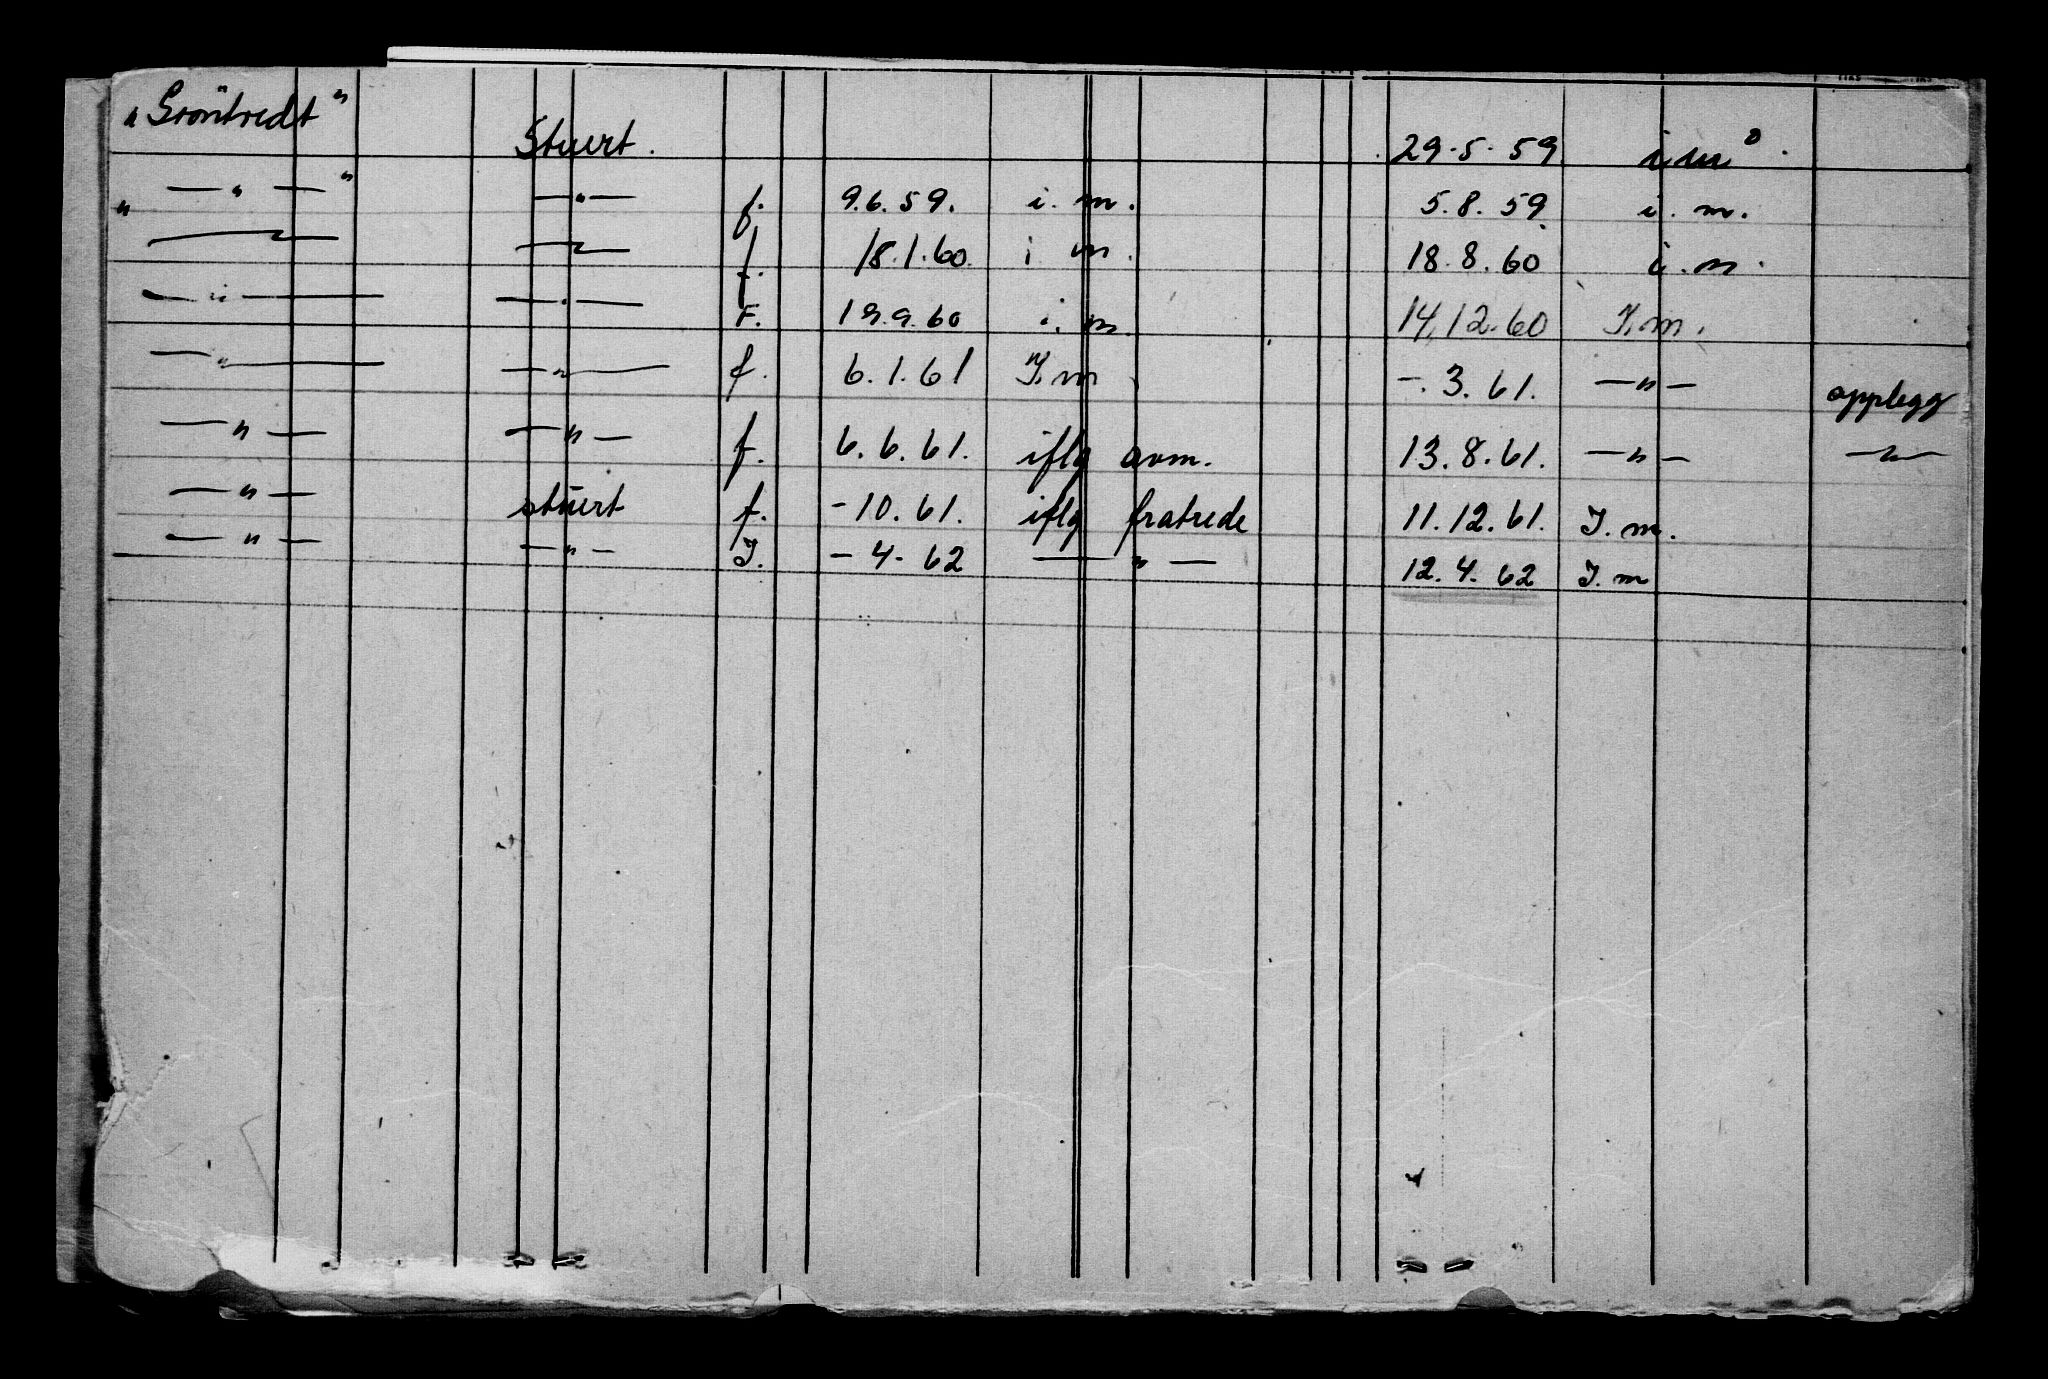 "Gröntvedt" Stuert. 29.5.59 i m.
" — " — " — " — f. 9.6.59. i. m. 5.8.59 i. m.
— " — — " — f. 18.1.60 i m. 18.8.60 i. m.
— " — — " — F. 19.9.60 i. m. 14.12.60 I. m.
— " — — " — f. 6.1.61 I. m - . 3. 61. — " — opplegg
— " — — " — f. 6.6.61. iflg avm. 13.8.61. — " — — " —
— " — stuert f. - 10. 61. iflg fratrede 11.12.61. I. m.
— " — — " — I. - 4 - 62 — " — 12.4.62 I. m